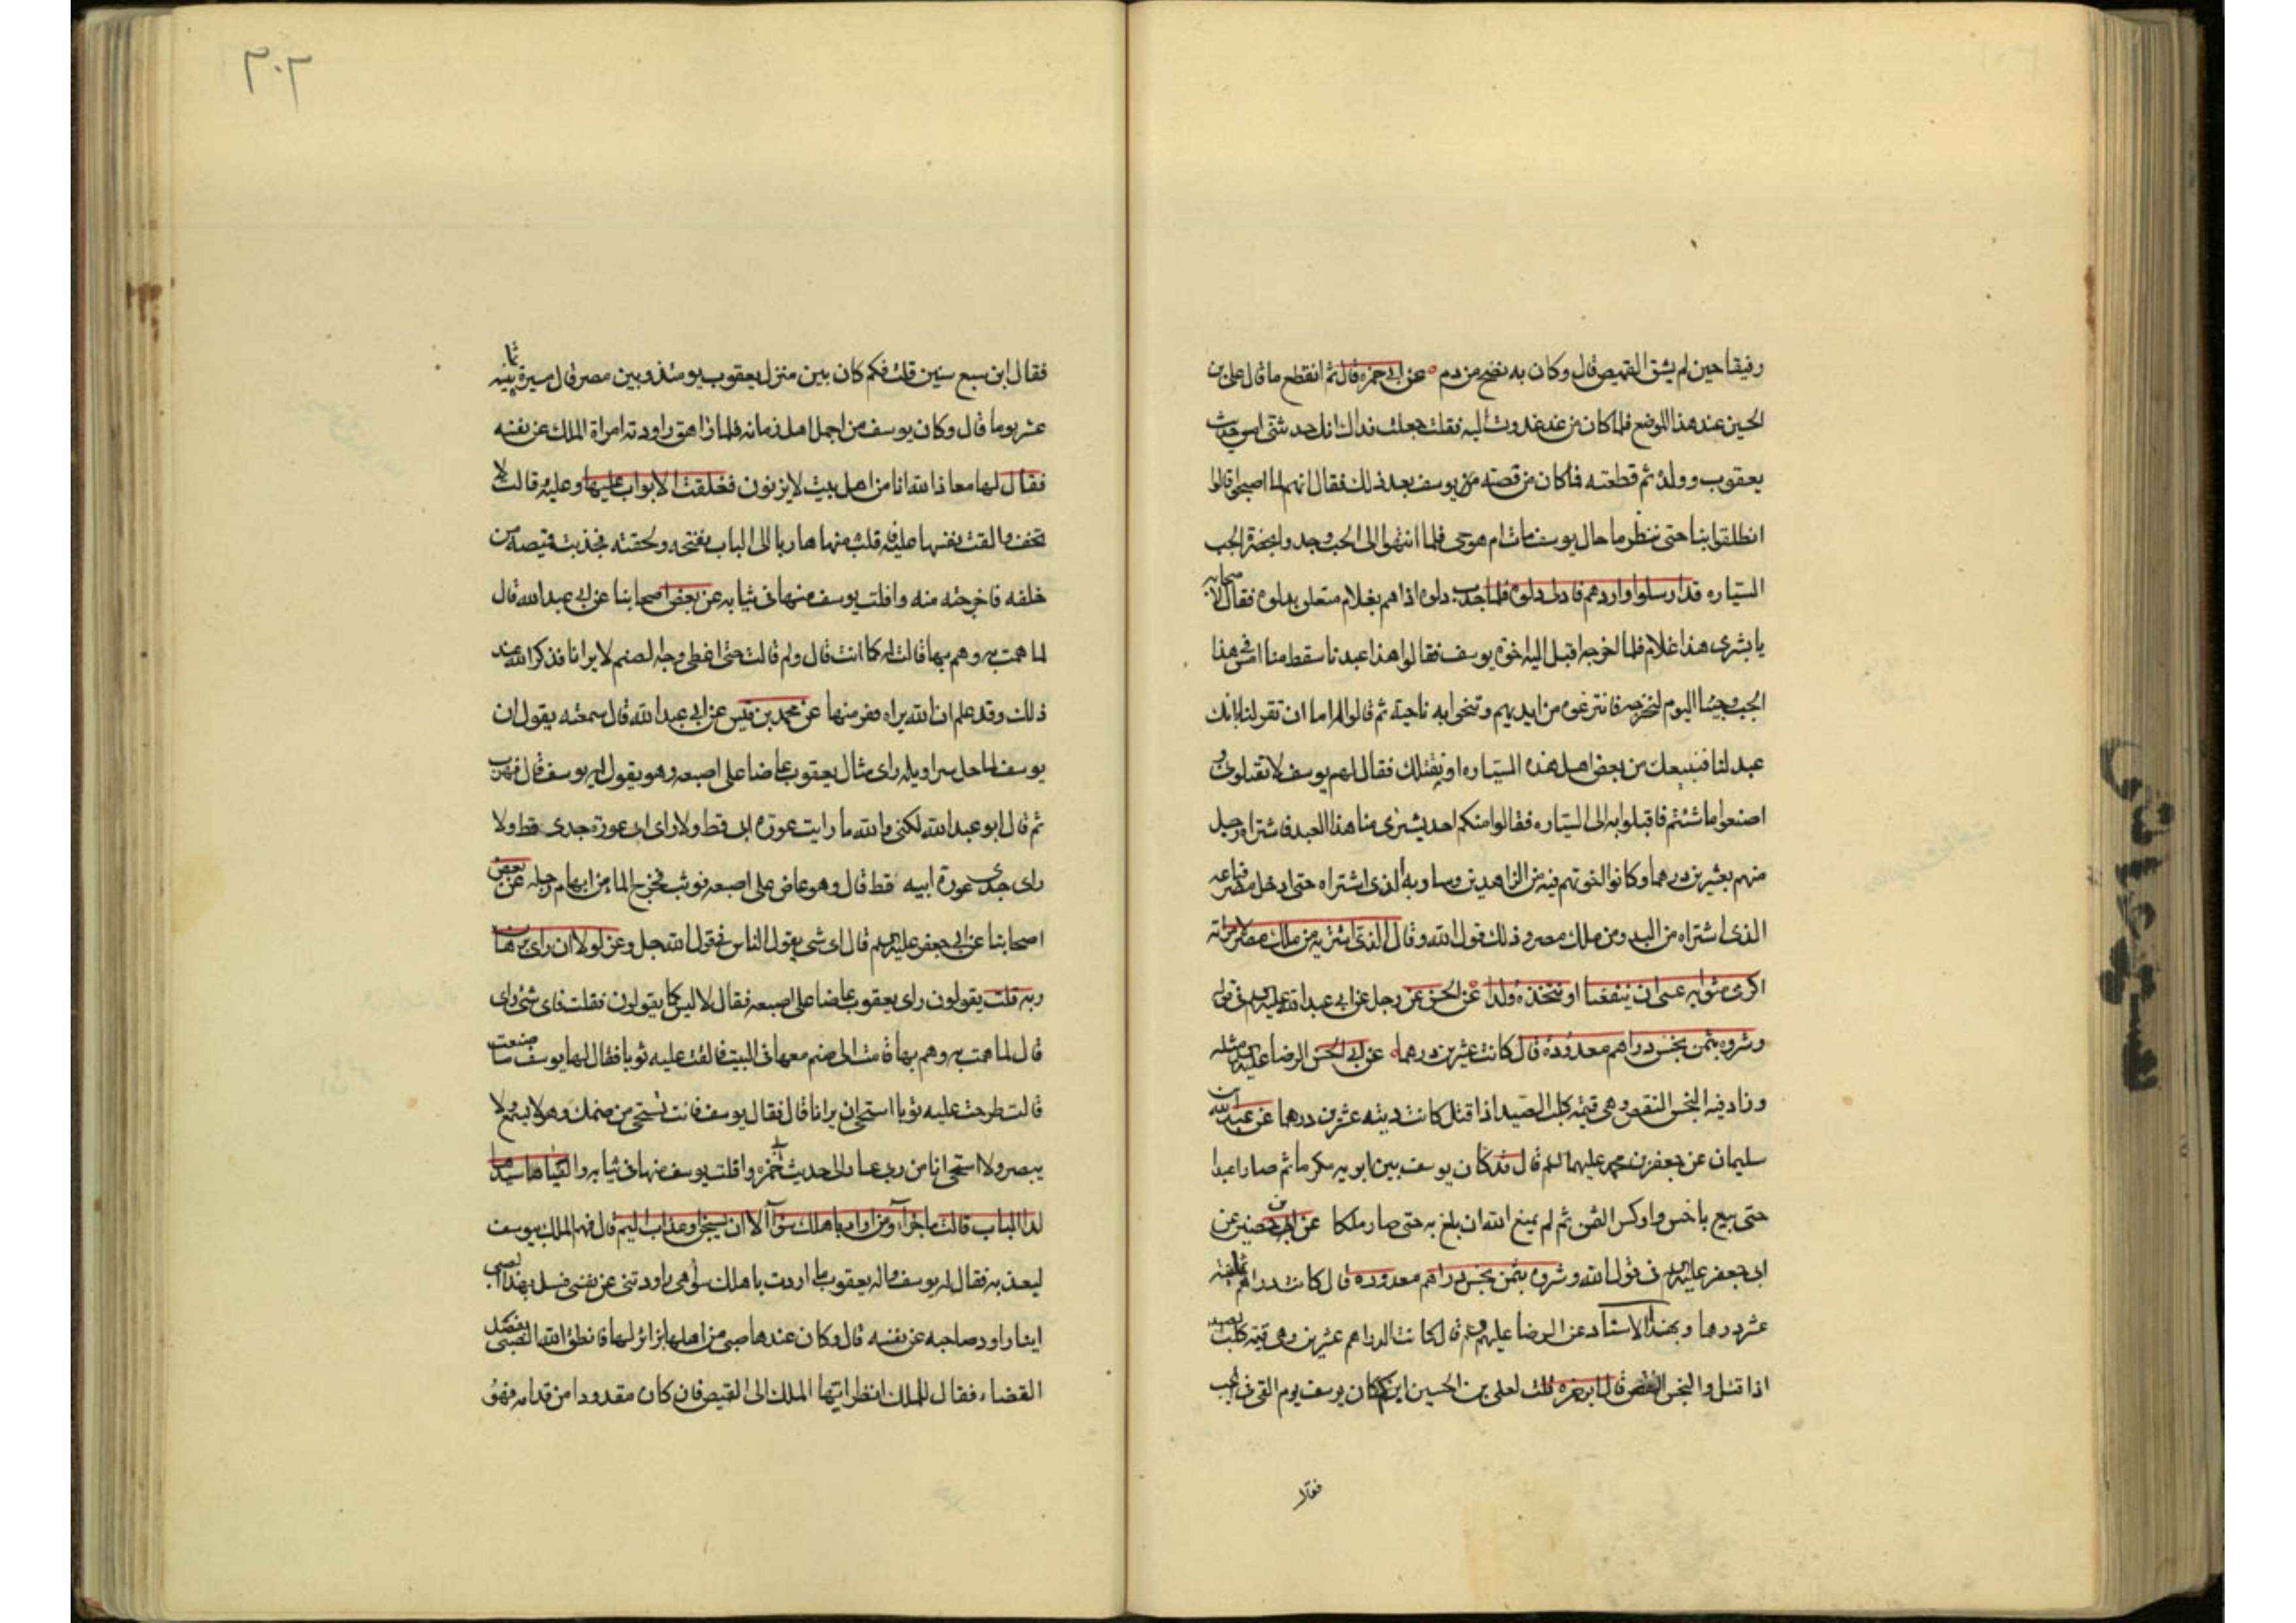 رفيقا حين لم يشق القميص قال وكان به نضح من دم عن ابى حمزه قال ثم انقطع ما قال على بن
الحسين عند هذا الموضع فلما كان من غد غدوت اليه فقلت جعلت فداك انك حدثتنى امس حديث
يعقوب وولده ثم قطعته فما كان من قصته من يوسف بعد ذلك فقال انهم لما اصبحوا قالوا
انطلقوا بنا حتى ننظر ما حال يوسف مات ام هو حى فلما انتهوا الى الجب وجدوا بحضرة الجب
السياره قد ارسلوا واردهم فادلى دلوه فلما جذب دلوه اذا هم بغلام متعلق بدلوه فقال لاصحابه
يا بشرى هذا غلام فلما اخرجه اقبل اليه اخوة يوسف فقالوا هذا عبدنا سقط منا امس فى هذا
الجب وجئنا اليوم لنخرجه فانتزعوه من ايديهم وتنحوا به ناحية ثم قالوا له اما ان تقر لنا بانك
عبد لنا فنبيعك من بعض اهل هذه السياره او نقتلك فقال لهم يوسف لا تقتلونى و
اصنعوا ما شئتم فاقبلوا به الى السياره فقالوا منكم احد يشترى منا هذا العبد فاشتراه رجل
منهم بعشرين درهما وكانوا اخوتهم فيه من الزاهدين وسار به الذى اشتراه حتى ادخل مصر فباعه
الذى اشتراه من البدو من ملك مصر وذلك قول الله وقال الذى اشتريه من ملك مصر لامراته
اكرمى مثوايه عسى ان ينفعنا او نتخذه ولدا عن الحسن عن رجل عن ابى عبد الله عليه السلم فى قوله
وشروه بثمن بخس دراهم معدوده قال كانت عشرين درهما عن ابى الحسن الرضا عليه السلم مثله
وزاد فيه البخس النقص وهى قيمة كلب الصيد اذا قتل كانت ديته عشرين درهما عن عبد الله بن
سليمان عن جعفر بن محمد عليهما السلم قال قد كان يوسف بين ابويه مكرما ثم صار عبدا
حتى بيع باخس واوكس الثمن ثم لم يمنع الله ان بلغ به حتى صار ملكا عن ابن حصين عن
ابى جعفر عليه السلم فى قول الله وشروه بثمن بخس دراهم معدوده قال كانت الدراهم ثمانية
عشر درهما وبهذا الاسناد عن الرضا عليه السلم قال كانت الدراهم عشرين وهى قيمة كلب الصيد
اذا قتل والبخس النقص قال ابن حمزه قلت لعلى بن الحسين ابن كم كان يوسف يوم القى فى الجب
فقال
٣٠٢
فقال ابن سبع سنين قلت فكم كان بين منزل يعقوب يومئذ وبين مصر قال مسيرة ثمانية
عشر يوما قال وكان يوسف من اجمل اهل زمانه فلما راهق راودته امراة الملك عن نفسه
فقال لها معاذ الله انا من اهل بيت لا يزنون فغلقت الابواب عليها وعليه وقالت لا
تخف والقت نفسها عليه فافلت منها هاربا الى الباب يفتحه ولحقته فجذبت قميصه من
خلفه فاخرجته منه وافلت يوسف منها فى ثيابه عن بعض اصحابنا عن ابى عبد الله قال
لما همت به وهم بها قالت له كما انت قال ولم قالت حتى اغطى وجه الصنم لا يرانا فذكر الله عند
ذلك وقد علم ان الله يراه ففر منها عن محمد بن قيس عن ابى عبد الله قال سمعته يقول ان
يوسف لما حل سراويله راى مثال يعقوب عاضا على اصبعه وهو يقول له يوسف قال فهرب
ثم قال ابو عبد الله لكنى والله ما رايت عورة ابى قط ولا راى ابى عورة جدى قط ولا
راى جدى عورة ابيه قط قال وهو عاض على اصبعه فوثب فخرج الماء من ابهام رجله عن بعض
اصحابنا عن ابى جعفر عليه السلم قال اى شى يقول الناس فى قول الله جل وعز لولا ان راى برهان
ربه قلت يقولون راى يعقوب عاضا على اصبعه فقال لا ليس كما يقولون فقلت فاى شئ راى
قال لما همت به وهم بها قامت الى صنم معها فى البيت فالقت عليه ثوبا فقال لها يوسف ما صنعت
قالت طرحت عليه ثوبا استحى ان يرانا قال فقال يوسف فانت تستحى من صنمك وهو لا يسمع ولا
يبصر ولا استحى انا من ربى عاد الى حديث ابى حمزه وافلت يوسف منها فى ثيابه والفيا سيدها
لدا الباب قالت ما جزاء من اراد باهلك سوآ الا ان يسجن او عذاب اليم قال فهم الملك بيوسف
ليعذبه فقال له يوسف واله يعقوب ما اردت باهلك سوء هى راودتنى عن نفسى فسل هذا الصبى
اينا راود صاحبه عن نفسه قال وكان عندها صبى من اهلها زائر لها فانطق الله الصبى بفصل
القضاء فقال للملك انظر ايها الملك الى القميص فان كان مقدودا من قدامه فهو